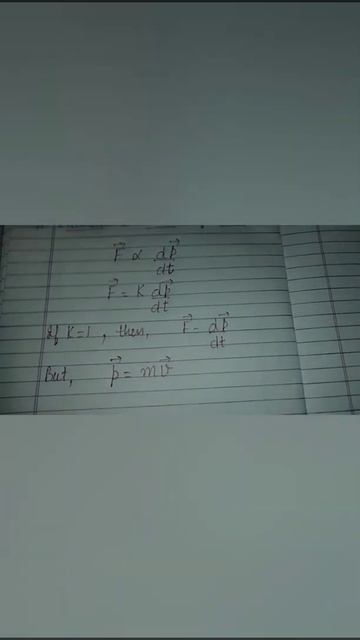 F⃗ ∝ dp⃗/dt
F⃗ = K dp⃗/dt
If K=1, then, F⃗ = dp⃗/dt
But, p⃗ = mv⃗